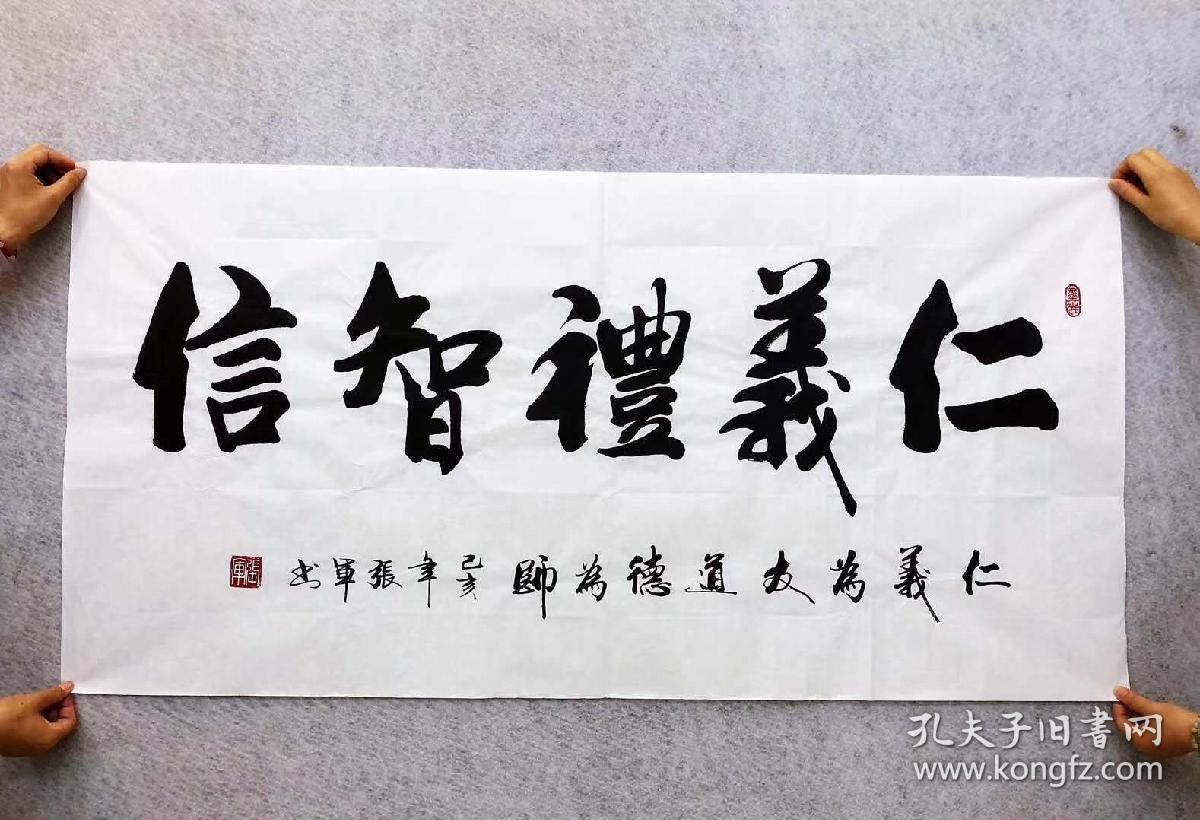 仁義禮智信
仁義為友道德為師己亥年張軍书
張軍
孔夫子旧書网
www.kongfz.com